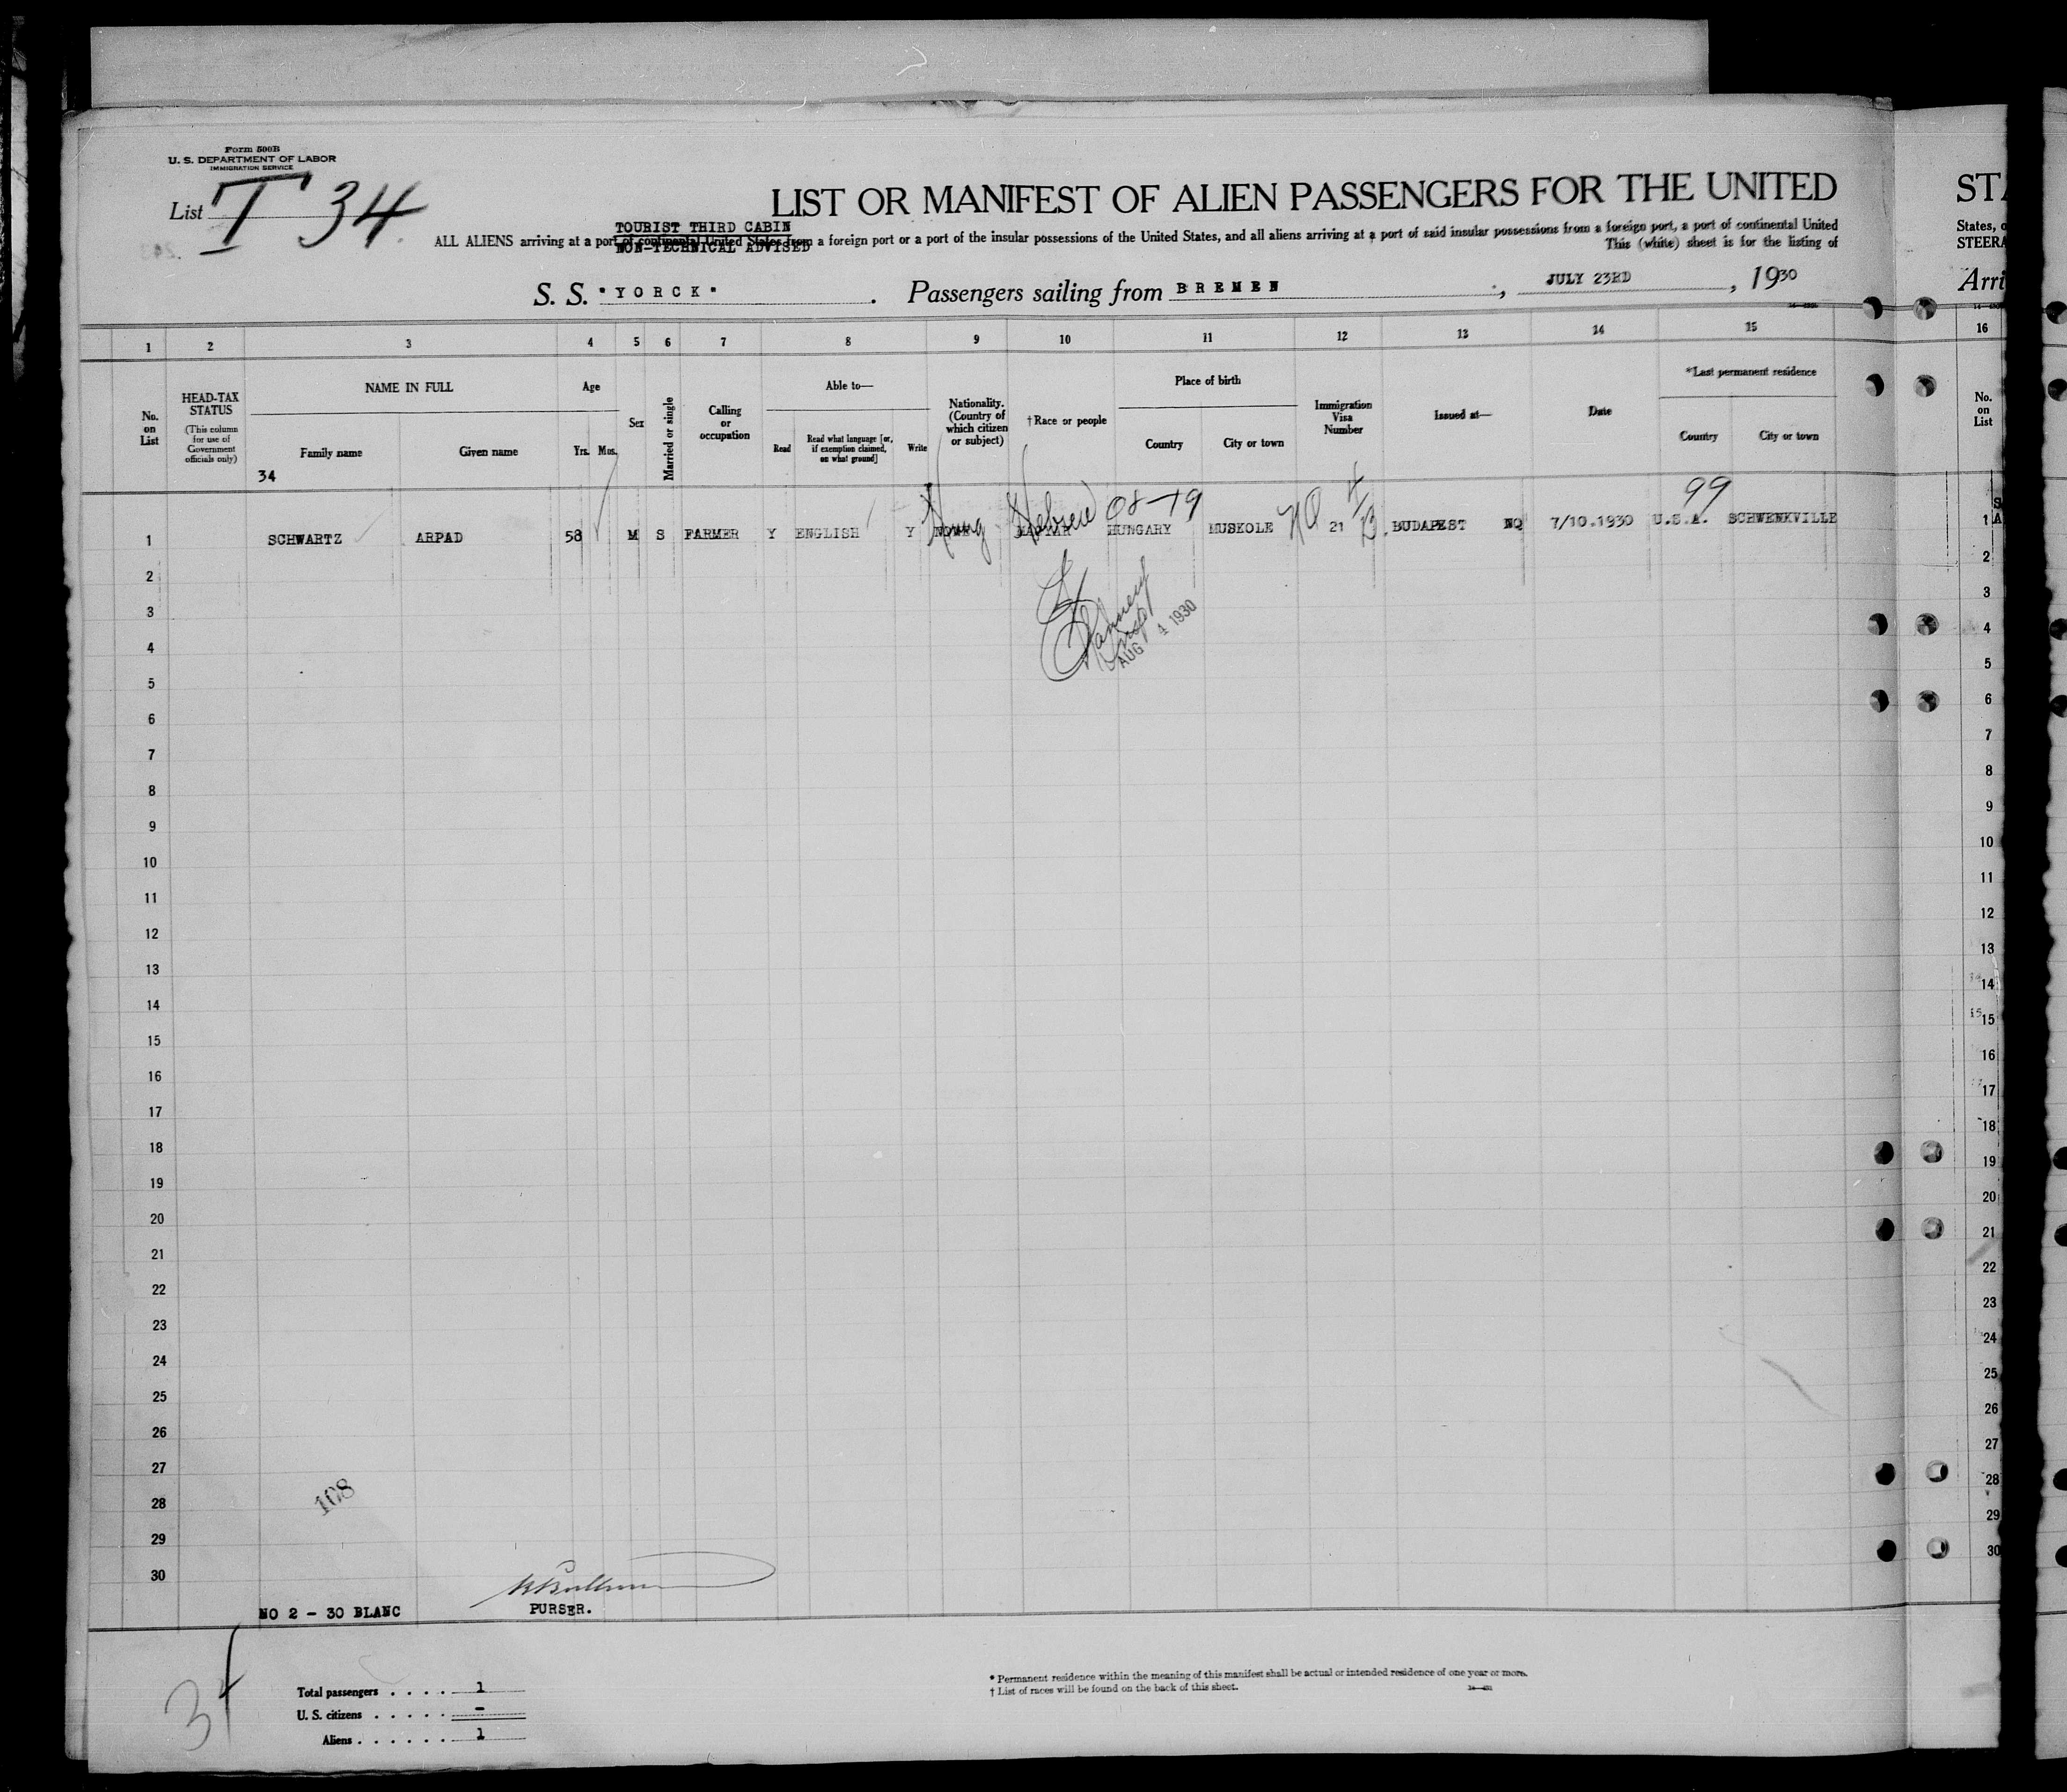 Form 500B
U. S. DEPARTMENT OF LABOR
IMMIGRATION SERVICE
List T 34
LIST OR MANIFEST OF ALIEN PASSENGERS FOR THE UNITED
TOURIST THIRD CABIN
ALL ALIENS arriving at a port of continental United States from a foreign port or a port of the insular possessions of the United States, and all aliens arriving at a port of said insular possessions from a foreign port, a port of continental United
NON-TECHNICAL ADVISED
This (white) sheet is for the listing of
S. S. "YORCK". Passengers sailing from BREMEN, JULY 23RD, 1930
1 2 3 4 5 6 7 8 9 10 11 12 13 14 15
No. on List
HEAD-TAX STATUS
(This column for use of Government officials only)
NAME IN FULL
Family name Given name
34
Age
Yrs. Mos.
Sex
Married or single
Calling or occupation
Able to—
Read Read what language [or, if exemption claimed, on what ground] Write
Nationality. (Country of which citizen or subject)
†Race or people
Place of birth
Country City or town
Immigration Visa Number
Issued at—
Date
*Last permanent residence
Country City or town
Hebrew 99
1 SCHWARTZ ARPAD 58 M S FARMER Y ENGLISH Y HUNGARY MUSKOLE NQ 21 BUDAPEST NQ 7/10.1930 U.S.A. SCHWENKVILLE
2
3
AUG 4 1930
4
5
6
7
8
9
10
11
12
13
14
15
16
17
18
19
20
21
22
23
24
25
26
27
28
108
29
30
NO 2 - 30 BLANC PURSER.
34
Total passengers . . . . . 1
U. S. citizens . . . . . -
Aliens . . . . . . 1
* Permanent residence within the meaning of this manifest shall be actual or intended residence of one year or more.
† List of races will be found on the back of this sheet.
STA
States, o
STEERA
Arri
16
No. on List
1
2
3
4
5
6
7
8
9
10
11
12
13
14
15
16
17
18
19
20
21
22
23
24
25
26
27
28
29
30